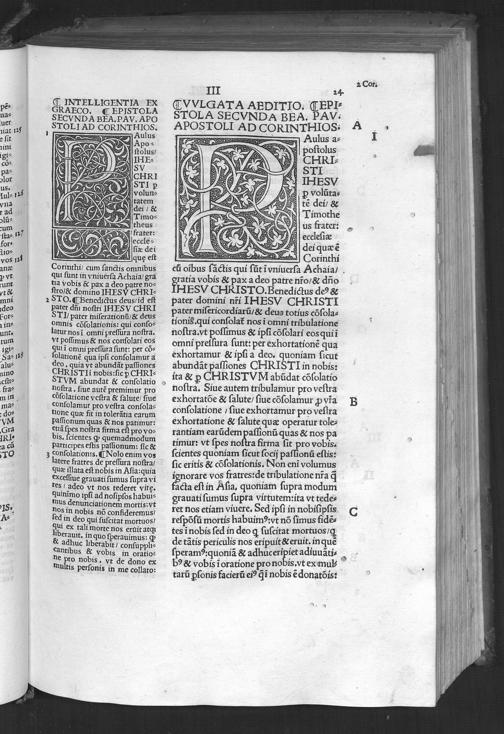 III
24
2 Cor.
⁋ INTELLIGENTIA EX
GRAECO. ⁋ EPISTOLA
SECVNDA BEA. PAV. APO
STOLI AD CORINTHIOS.
Aulus
Apo-
stolus
IHE-
SV
CHRI
STI p
volun-
tatem
dei / &
Timo-
theus
frater:
eccle-
siæ dei
quę est
Corinthi: cum sanctis omnibus
qui sunt in vniuersa Achaia / gra
tia vobis & pax a deo patre no-
stro / & domino IHESV CHRI-
STO. ⁋ Benedictus deus / id est
pater dñi nostri IHESV CHRI
STI / pater miserationũ / & deus
omnis cõsolationis: qui conso-
latur nos ĩ omni pressura nostra.
vt possimus & nos consolari eos
qui ĩ omni pressura sunt: per cõ-
solationẽ qua ipsi consolamur a
deo, quia vt abundãt passiones
CHRISTI in nobis: sic p CHRI-
STVM abundat & consolatio
nostra. siue aut premimur pro
consolatione vestra & salute / siue
consolamur pro vestra consola-
tione quæ fit in tolerãtia earum
passionum quas & nos patimur:
vt spes nostra firma est pro vo-
bis, scientes qp quemadmodum
participes estis passionum: sic &
consolationis. ⁋ Nolo enim vos
latere fratres de pressura nostra /
quæ illata est nobis in Asia: quia
excessiue grauati sumus supra vi
res / adeo vt nos tederet vitę.
quinimo ipsi ad nosipsos habui-
mus denunciationem mortis: vt
nos in nobis nõ confideremus /
sed in deo qui suscitat mortuos /
qui ex tali morte nos eruit atqp
liberauit. in quo sperauimus: qp
& adhuc liberabit / consuppli-
cantibus & vobis in oratio-
ne pro nobis, vt de dono ex
multis personis in me collato:
⁋ VVLGATA AEDITIO. ⁋ EPI-
STOLA SECVNDA BEA. PAV.
APOSTOLI AD CORINTHIOS.
A
I
Aulus a-
postolus
CHRI-
STI
IHESV
p volũta-
tẽ dei / &
Timothe
us frater:
ecclesiæ
dei quæ ẽ
Corinthi
cũ oibus sãctis qui sũt ĩ vniuersa Achaia /
gratia vobis & pax a deo patre nr̃o / & dño
IHESV CHRISTO. Benedictus deꝰ &
pater domini nr̃i IHESV CHRISTI
pater misericordiarũ / & deus totius cõsola-
tionis. qui consolat̃ nos ĩ omni tribulatione
nostra. vt possimus & ipsi cõsolari eos qui ĩ
omni pressura sunt: per exhortationẽ qua
exhortamur & ipsi a deo. quoniam sicut
abundãt passiones CHRISTI in nobis:
ita & p CHRISTVM abũdat cõsolatio
nostra. Siue autem tribulamur pro vestra
exhortatõe & salute / siue cõsolamur p vr̃a
consolatione / siue exhortamur pro vestra
exhortatione & salute quæ operatur tole-
rantiam earũdem passionũ quas & nos pa
timur: vt spes nostra firma sit pro vobis.
scientes quoniam sicut socij passionũ estis:
sic eritis & cõsolationis. Non eni volumus
ignorare vos fratres: de tribulatione nr̃a q̃
facta est in Asia, quoniam supra modum
grauati sumus supra virtutem: ita vt tede-
ret nos etiam viuere. Sed ipsi in nobisipsis
respõsũ mortis habuimꝰ: vt nõ simus fidẽ-
tes ĩ nobis sed in deo q suscitat mortuos / q
de tãtis periculis nos eripuit & eruit. in quẽ
speramꝰ: quoniã & adhuc eripiet adiuuãti-
bꝰ & vobis ĩ oratione pro nobis. vt ex mul-
tarũ psonis facierũ eiꝰ q̃ ĩ nobis ẽ donatõis:
B
C